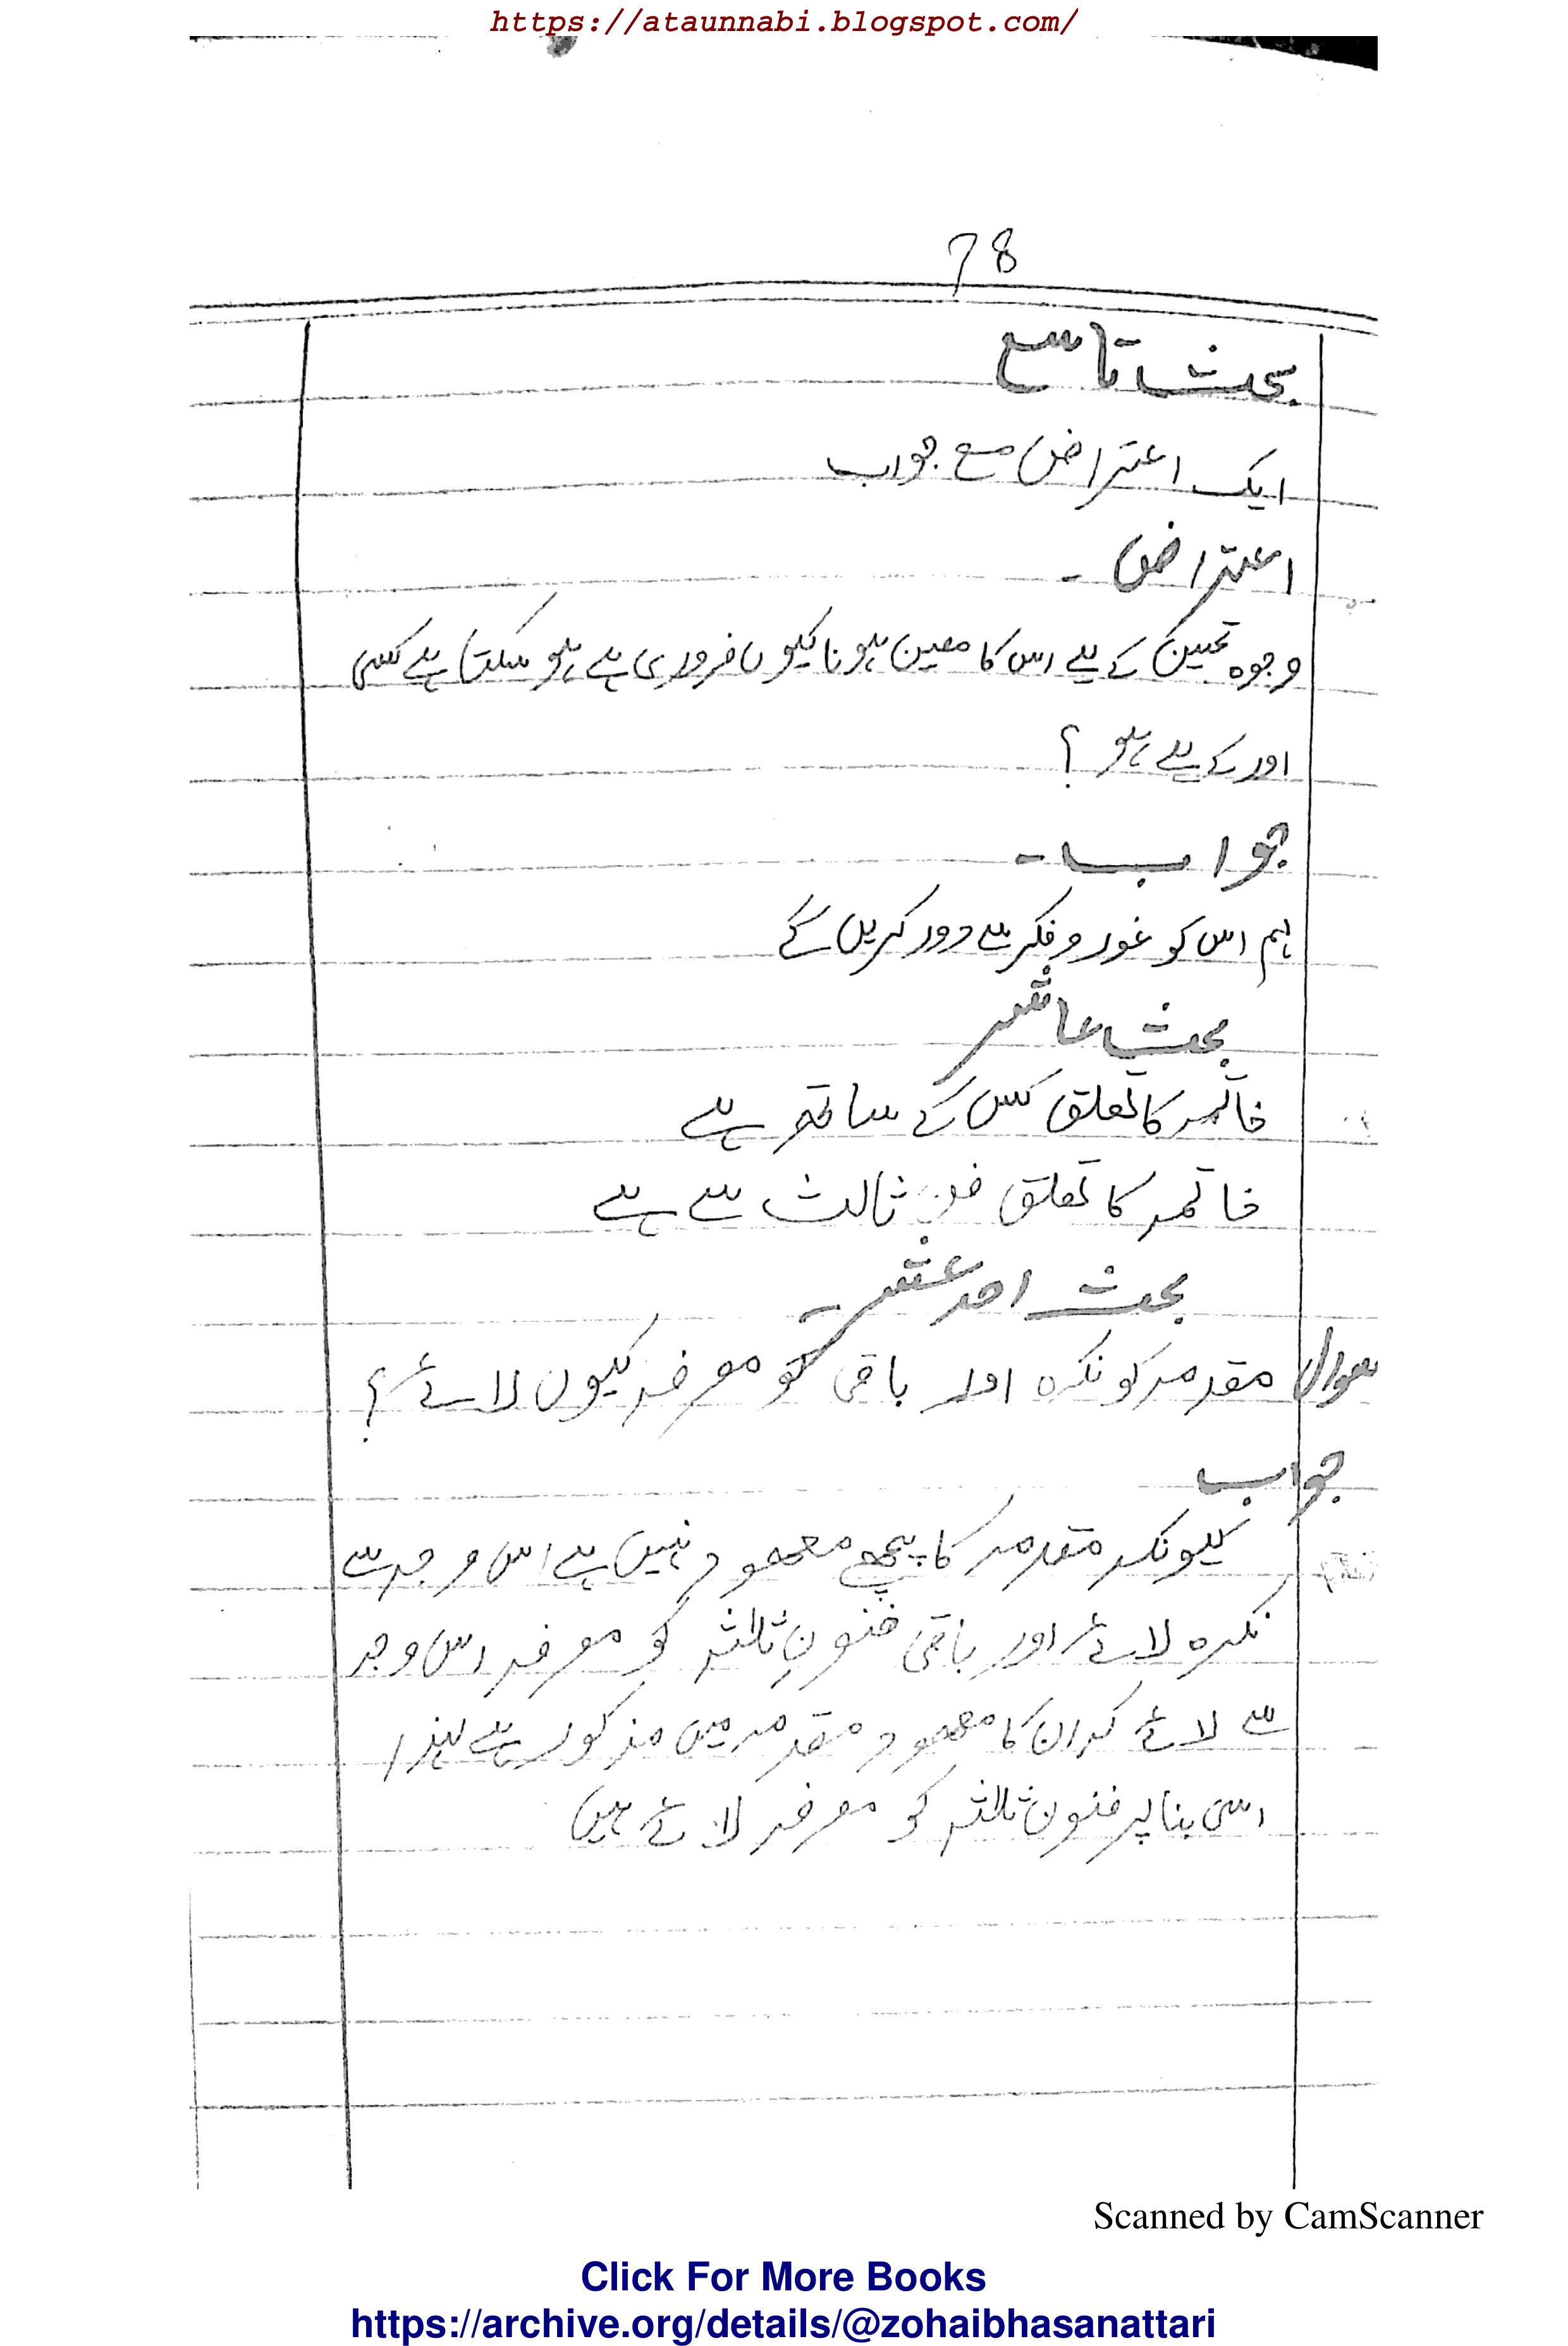 https://ataunnabi.blogspot.com/
78
بحث تاسع
ایک اعتراض مع جواب
اعتراض -
وجوہ تحسین کے لیے اس کا معین ہونا کیوں ضروری ہے ہو سکتا ہے کسی
اور کے لیے ہو ؟
جواب -
ہم اس کو غور و فکر سے دور کریں گے
بحث عاشر
خاتمہ کا تعلق کس کے ساتھ ہے
خاتمہ کا تعلق فن ثالث سے ہے
بحث احد عشر -
سوال مقدمہ کو نکرہ اور باقی کو معرفہ کیوں لائے ؟
جواب
کیونکہ مقدمہ کا پیچھے معھود نہیں ہے اس وجہ سے
نکرہ لائے اور باقی فنونِ ثلاثہ کو معرفہ اس وجہ
سے لائے کہ ان کا معھود مقدمہ میں مذکور ہے لہذا
اسی بنا پر فنون ثلاثہ کو معرفہ لائے ہیں
Scanned by CamScanner
Click For More Books
https://archive.org/details/@zohaibhasanattari